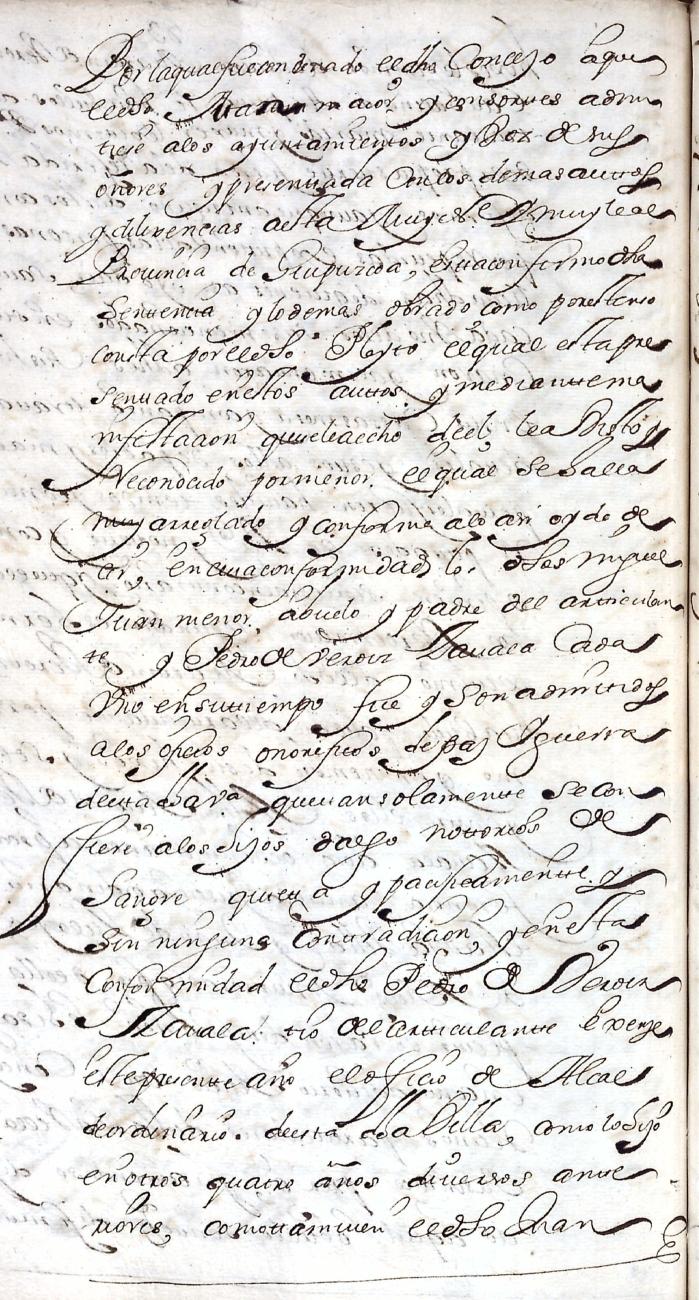 Por la qual fue condenado el dho Concejo a que
el dho Juan maior y consortes admi
tiese a los ayuntamientos y Goz de sus
onores y presentada con los demas auttos
y dilixencias a esta Muy N. Y muy leal
Provincia de Guipuzcoa, esta confirmo dha
Sentencia y lo demas obrado como por esttenso
consta por el dho Pleyto el qual esta pre
sentado en esttos auttos y mediantte ma
nifesttacion que se le a echo de el, lea Bistto y
Reconocido por menor el qual se halla
muy arreglado y conforme alo asi oydo de
cir, en cuia conformidad los dhos Miguel
Juan menor abuelo y padre del articulan
te y Pedro de Verdin Zavala Cada
Vno en su tiempo fue y Son admitidos
a los ofiçios onorificos de paz Y guerra
de esta dha Va que tan solamente se con
fieren a los Hijos dalgo nottorios de
Sangre quieta y pacificamente y
Sin ninguna Contradicion, y en esta
Conformidad el dho Pedro de Verdin
Zavala tio del articulante exerze
este presente año el ofiçio de Alcal
de ordinario de esta dha Villa, como lo hizo
en otros quatro años diversos ante
riores, como ttamvien el dho Juan